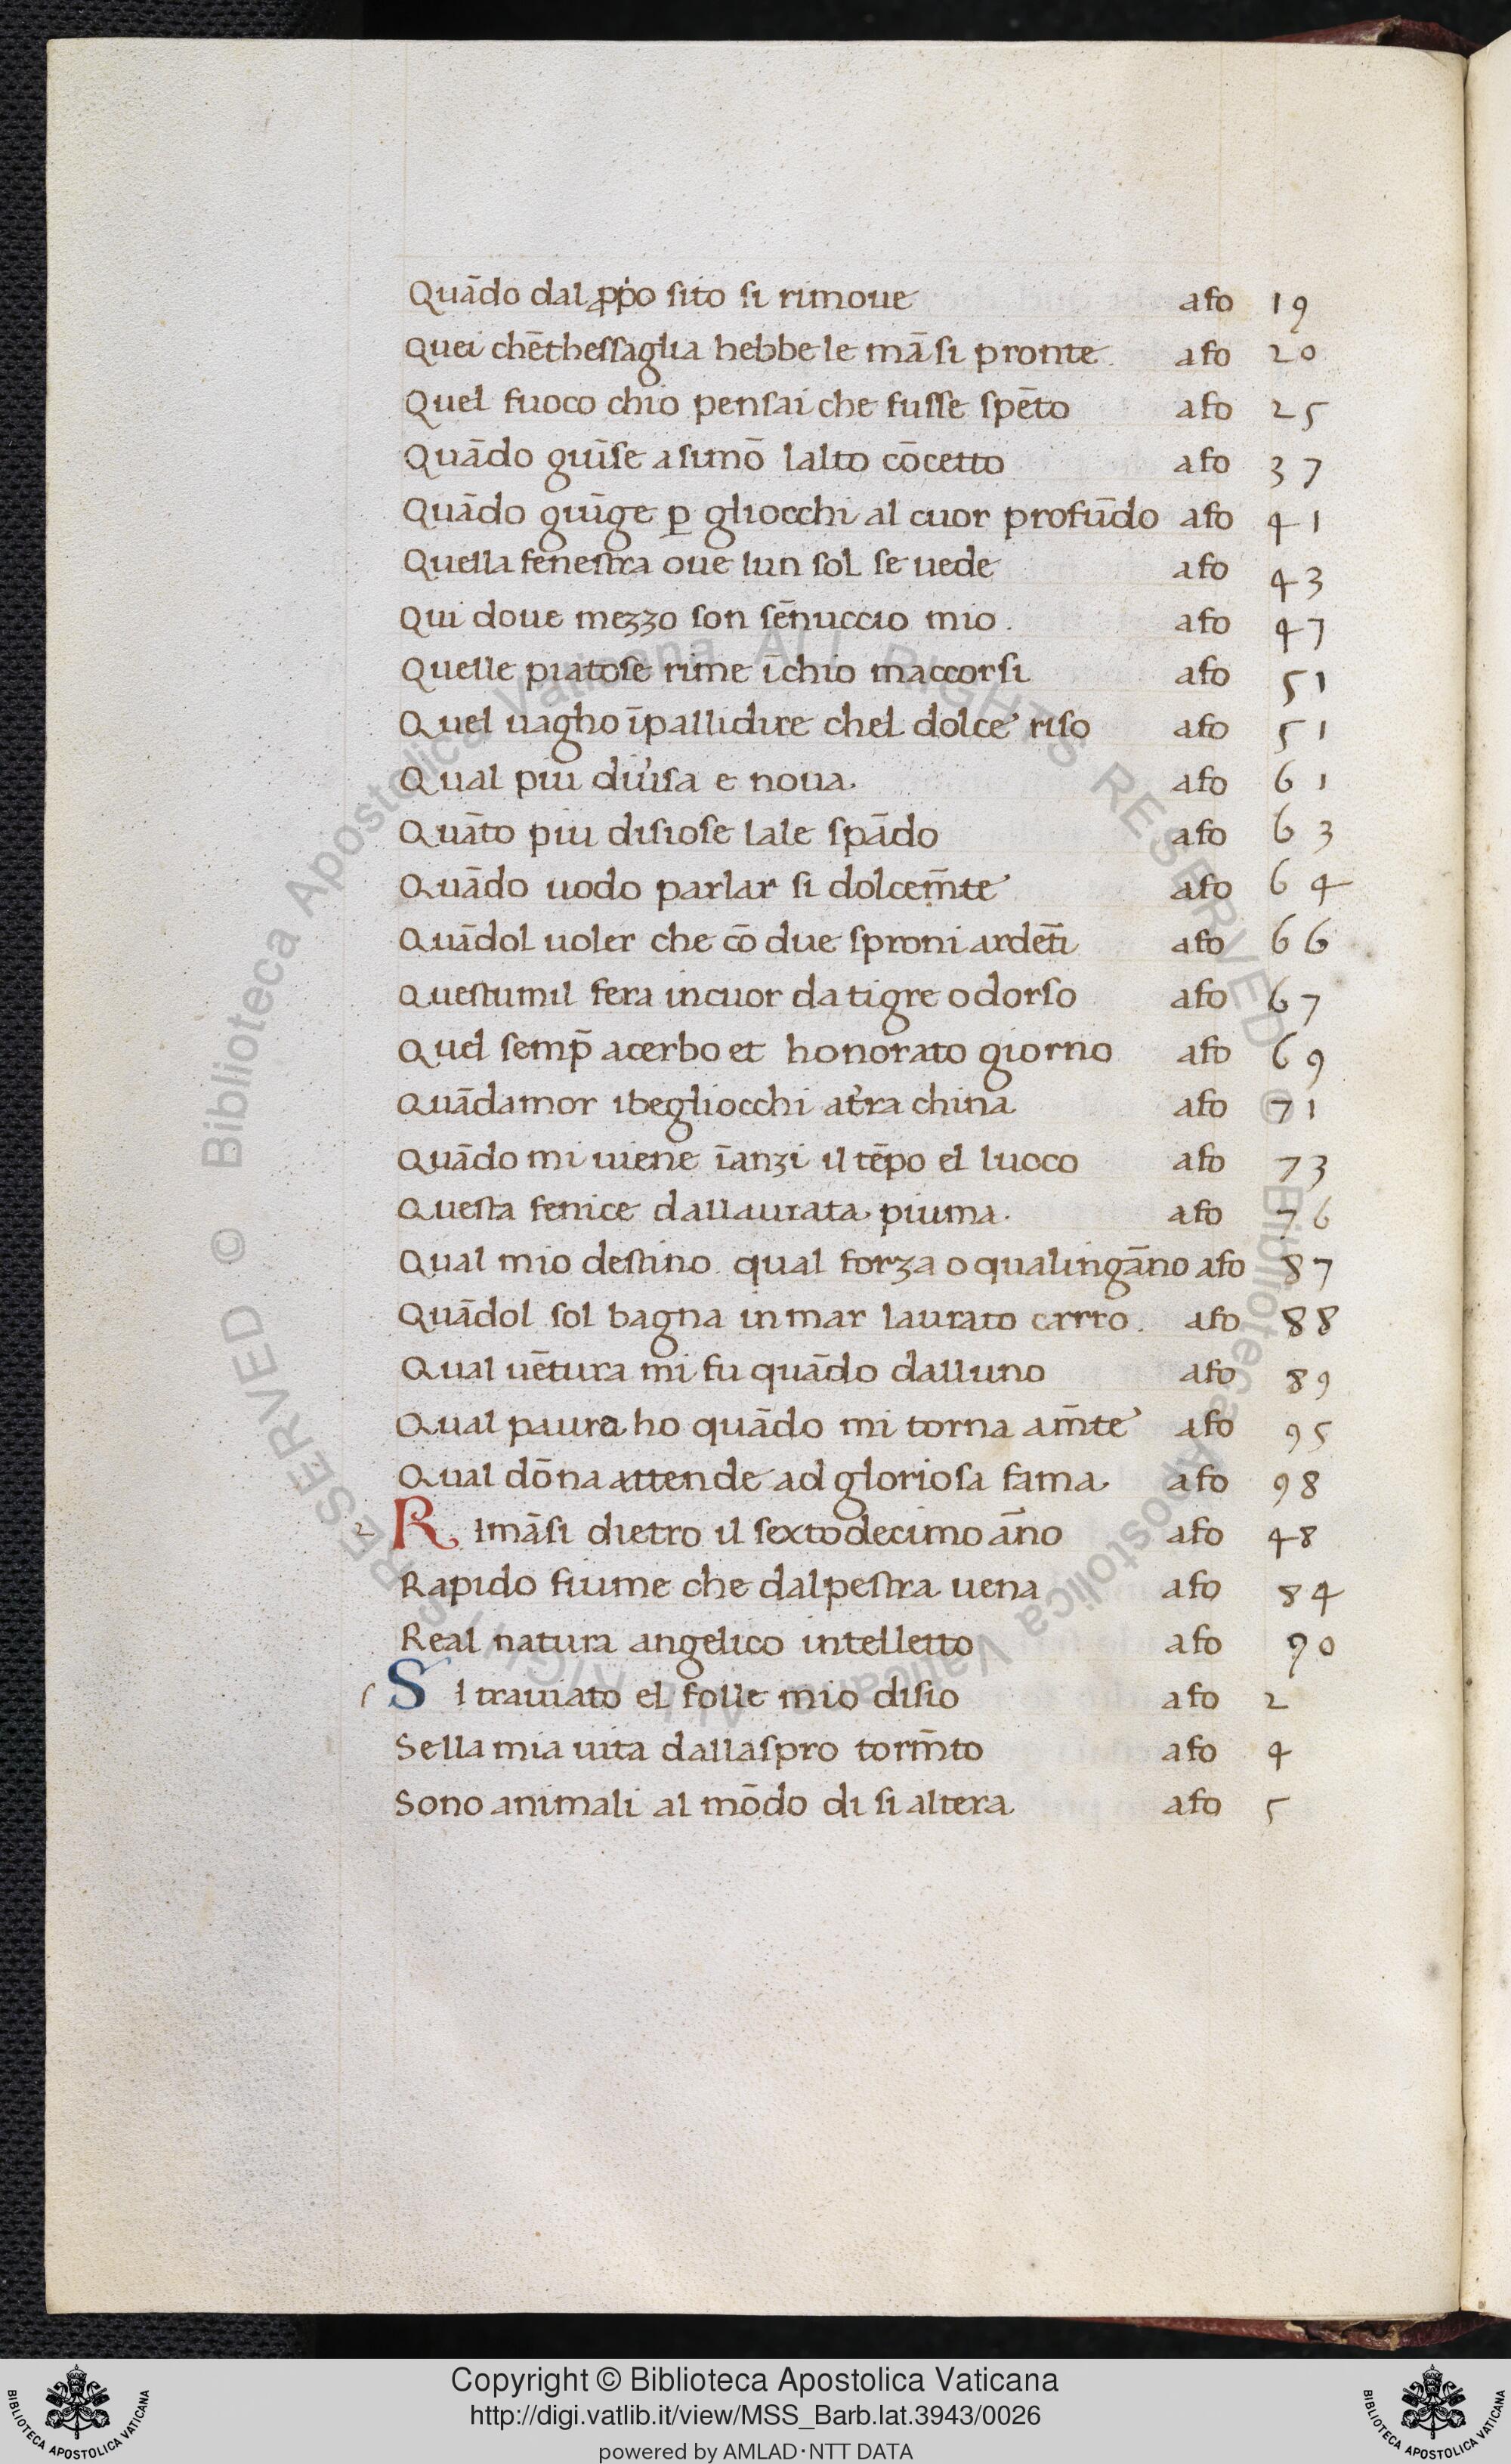 Quādo dal ꝓpo sito si rimoue afo 19
Quei chēthessaglia hebbe le mā si pronte afo 20
Quel fuoco chio pensai che fusse spēto afo 25
Quādo guīse a simō lalto cōcetto afo 37
Quādo guīge ꝑ gliocchi al cuor profūdo afo 41
Quella fenestra oue lun sol se uede afo 43
Qui doue mezzo son sēnuccio mio. afo 47
Quelle piatose rime īchio maccorsi afo 51
Quel uagho īpallidire chel dolce riso afo 51
Qual piu diu'sa e noua. afo 61
Quāto piu disiose lale spādo afo 63
Quādo uodo parlar si dolcem̄te afo 64
Quādol uoler che cō due sproni ardēti afo 66
Questumil fera in cuor da tigre o dorso afo 67
Quel semp̄ acerbo et honorato giorno afo 69
Quādamor i begliocchi at'ra china afo 71
Quādo mi uiene īanzi il tēpo el luoco afo 73
Questa fenice dallaurata piuma. afo 76
Qual mio destino qual forza o qualingāno afo 87
Quādol sol bagna in mar laurato carro. afo 88
Qual uētura mi fu quādo dalluno afo 89
Qual paura ho quādo mi torna am̄te afo 95
Qual dōna attende ad gloriosa fama afo 98
2 R imāsi dietro il sextodecimo āno afo 48
Rapido fiume che dalpestra uena afo 84
Real natura angelico intelletto afo 90
S I trauiato el folle mio disio afo 2
Se lla mia uita dallaspro torm̄to afo 4
Sono animali al mōdo di si altera afo 5
Biblioteca Apostolica Vaticana ALL RIGHTS RESERVED © Biblioteca Apostolica Vaticana ALL RIGHTS RESERVED ©
Copyright © Biblioteca Apostolica Vaticana
http://digi.vatlib.it/view/MSS_Barb.lat.3943/0026
powered by AMLAD·NTT DATA
BIBLIOTECA APOSTOLICA VATICANA
BIBLIOTECA APOSTOLICA VATICANA